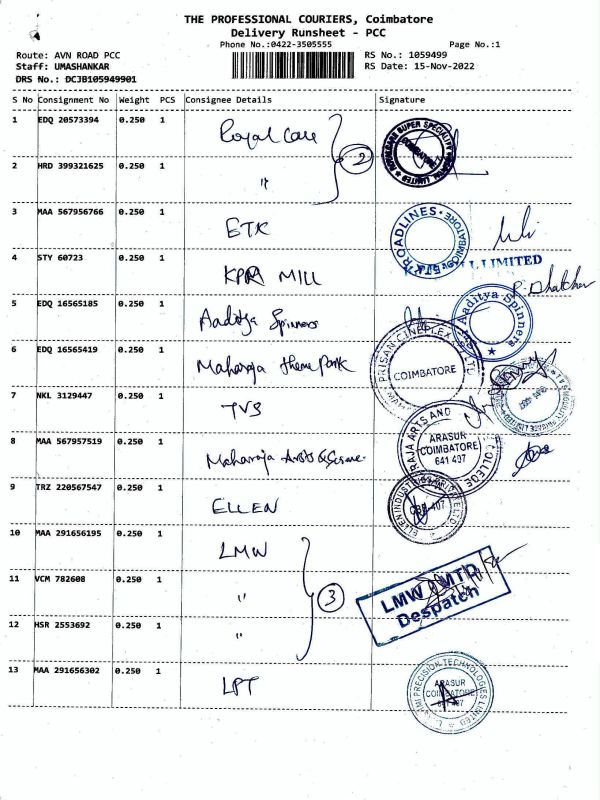 THE PROFESSIONAL COURIERS, Coimbatore
Delivery Runsheet - PCC
Phone No.:0422-3505555
Page No.:1
Route: AVN ROAD PCC
RS No.: 1059499
Staff: UMASHANKAR
RS Date: 15-Nov-2022
DRS No.: DCJB105949901
S No Consignment No Weight PCS Consignee Details Signature
1 EDQ 20573394 0.250 1 Royal Care
2 HRD 399321625 0.250 1 〃
2
3 MAA 567956766 0.250 1 ETK
ROADLINES COIMBATORE
4 STY 60723 0.250 1 KPR MILL
LIMITED
5 EDQ 16565185 0.250 1 Aaditya Spinners
Aaditya Spinners
6 EDQ 16565419 0.250 1 Maharaja theme Park
COIMBATORE
7 NKL 3129447 0.250 1 TVS
8 MAA 567957519 0.250 1 Maharaja Arts & Science
RAJA ARTS AND
COLLEGE
ARASUR
COIMBATORE
641 407
9 TRZ 220567547 0.250 1 ELLEN
10 MAA 291656195 0.250 1 LMW
11 VCM 782608 0.250 1 〃
3
12 HSR 2553692 0.250 1 〃
LMW LMTD
Despatch
13 MAA 291656302 0.250 1 LPT
PRECISION TECHNOLOGIES LIMITED
ARASUR
COIMBATORE
641 407